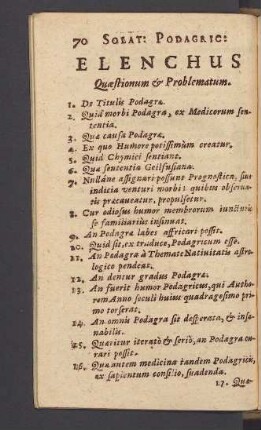 70 SOLAT: PODAGRIC:
ELENCHUS
Quæstionum & Problematum.
1. De Titulis Podagræ.
2. Quid morbi Podagra, ex Medicorum sen-
tentia.
3. Quæ causa Podagræ.
4. Ex quo Humore potissimùm creatur.
5. Quid Chymici sentiant.
6. Quæ sententia Geilfusiana.
7. Nullane assignari possunt Prognostica, siue
indicia venturi morbi: quibus obserua-
tis præcaueatur, propulsetur.
8. Cur odiosus humor membrorum iuncturis
se familiariùs insinuat.
9. An Podagræ labes affricari possit.
10. Quid sit, ex traduce, Podagricum esse.
11. An Podagra à Themate Natiuitatis astro-
logicè pendeat.
12. An dentur gradus Podagræ.
13. An fuerit humor Podagricus, qui Autho-
rem Anno seculi huius quadragesimo pri-
mo torserat.
14. An omnis Podagra sit desperata, & insa-
nabilis.
15. Quæritur iteratò & seriò, an Podagra cu-
rari possit.
16. Quænam medicina tandem Podagricis,
ex sapientum consilio, suadenda.
17. Quæ-